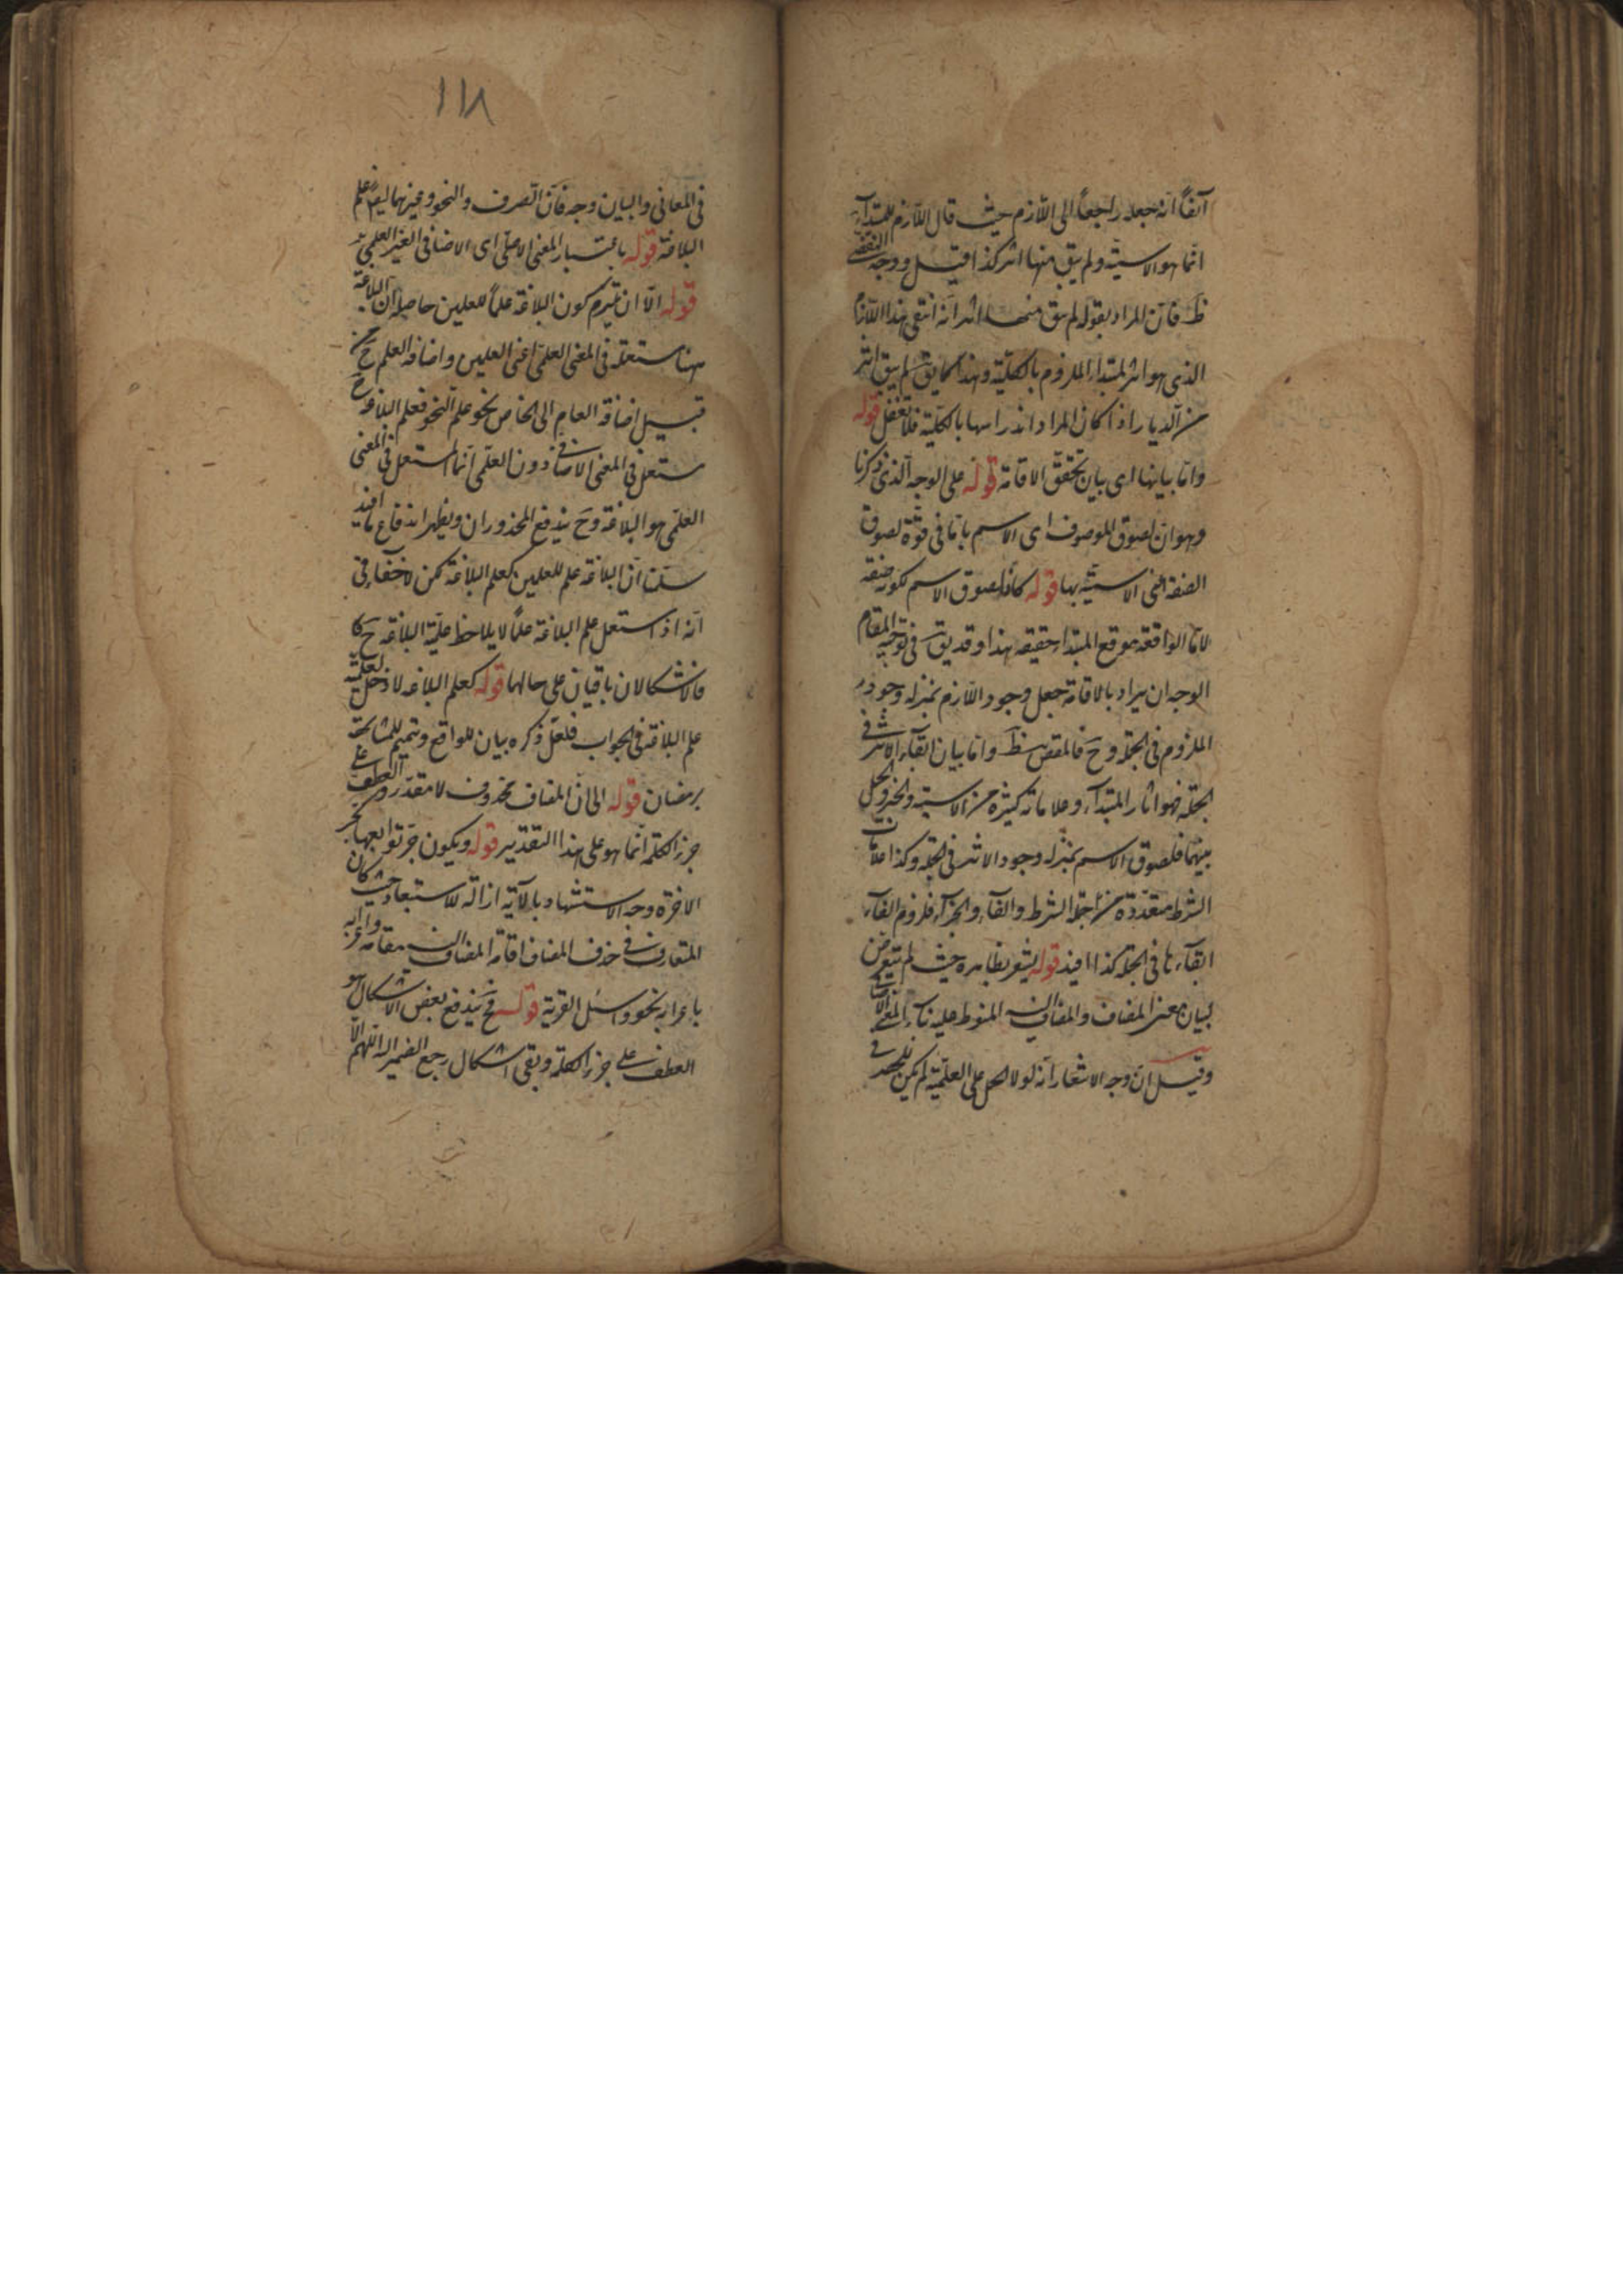 آنفاً انه جعله راجعاً الى اللازم حيث قال اللازم للمبتدأ
انما هو الاسمية ولم يبق منها اثر كذا قيل ووجه النقضى
ظ فان المراد بقوله لم يبق منها اثر انه انتفى هذا اللازم
الذى هو اثر المبتدأ الملزوم بالكلية وهذا كما يق لم يبق اثر
من الديار اذا كان المراد اندراسها بالكلية فلا تغفل قوله
واما بيانها اى بيان تحقق الاقامة قوله على الوجه الذى ذكرنا
وهو ان لصوق الموصوف اى الاسم باما فى قوة لصوق
الصفة اعنى الاسمية بها قوله كان لصوق الاسم لكونه صفة
لاما الواقعة موقع المبتدأ حقيقة هذا وقد يق فى توجيه المقام
الوجه ان يراد بالاقامة جعل وجود اللازم بمنزلة وجود
الملزوم فى الجملة وح فالمقص ظ واما بيان ابقاء الاثر فى
الجملة فهو اثار المبتدأ وعلاماته كثيرة من الاسمية والخبر والحمل
بينهما فلصوق الاسم بمنزلة وجود الاثر فى الجملة وكذا علامات
الشرط متعددة من جملة الشرط والفاء والجزاء فلزوم الفاء
ابقاء ما فى الجملة كذا افيد قوله يشعر بظاهره حيث لم يتعرض
لبيان معنى المضاف والمضاف اليه المنوط عليه بناء المعنى الاضافى
وقيل ان وجه الاشعار انه لولا الحمل على العلمية لم يكن للحصر فى
١١٨
فى المعانى والبيان وجه فان الصرف والنحو وغيرهما ليس علم
البلاغة قوله باعتبار المعنى الاصلى اى الاضافى الغير العلمى
قوله الا ان يلتزم كون البلاغة علماً للعلمين حاصله ان البلاغة
ههنا مستعملة فى المعنى العلمى اعنى العلمين واضافة العلم ح من
قبيل اضافة العام الى الخاص نحو علم النحو فعلم البلاغة ح
مستعمل فى المعنى الاضافى دون العلمى انما المستعمل فى المعنى
العلمى هو البلاغة وح يندفع المحذوران ويظهر اندفاع ما افيد
سلمنا ان البلاغة علم للعلمين كعلم البلاغة لكن لا خفاء فى
انه اذا استعمل علم البلاغة علماً لا يلاحظ علمية البلاغة ح
فالاشكالان باقيان على حالهما قوله كعلم البلاغة لا دخل لعلمية
علم البلاغة فى الجواب فلعل ذكره بيان للواقع وتتميم للمشابهة
برمضان قوله الى ان المضاف محذوف لا مقدر والعطف على
جزء الكلمة انما هو على هذا التقدير قوله ويكون جر توابعها بجر
الاخرة وجه الاستشهاد بالآية ازالة للاستبعاد حيث كان
المتعارف فى حذف المضاف اقامة المضاف اليه مقامه واعرابه
باعرابه نحو واسئل القرية قوله فح يندفع بعض الاشكال هو
العطف على جزء الكلمة وبقى اشكال رجع الضمير اليه اللهم الا